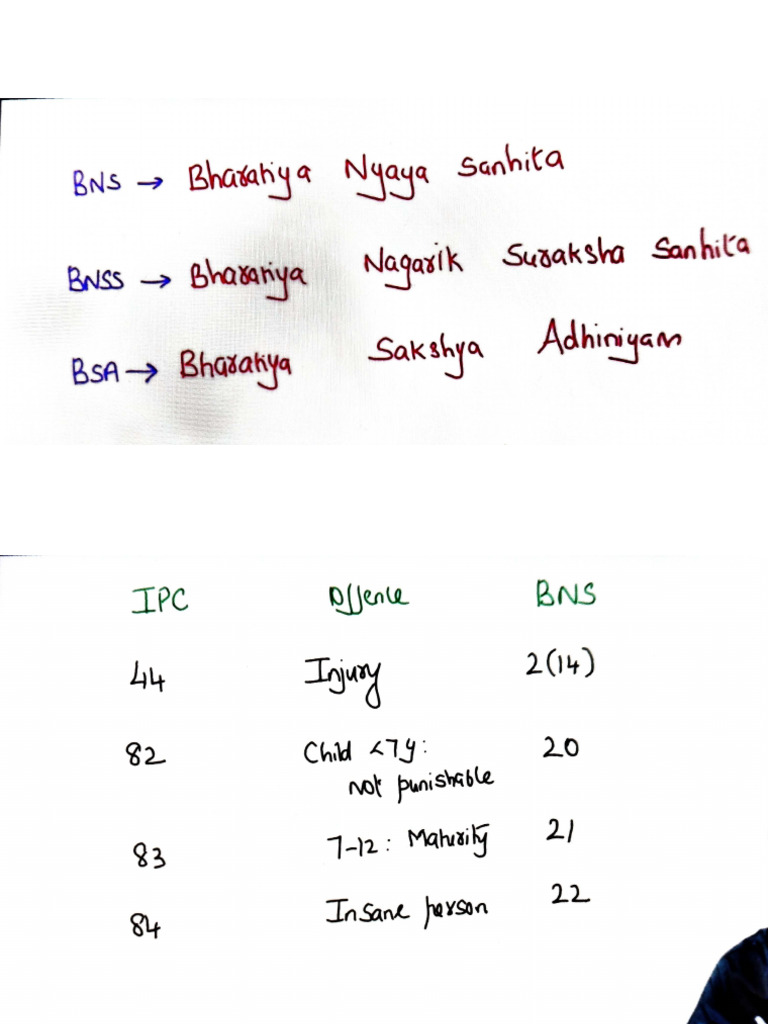 BNS → Bharatiya Nyaya Sanhita
BNSS → Bharatiya Nagarik Suraksha Sanhita
BSA → Bharatiya Sakshya Adhiniyam
IPC Offence BNS
44 Injury 2(14)
82 Child <7y: 20
not punishable
83 7-12: Maturity 21
84 Insane person 22